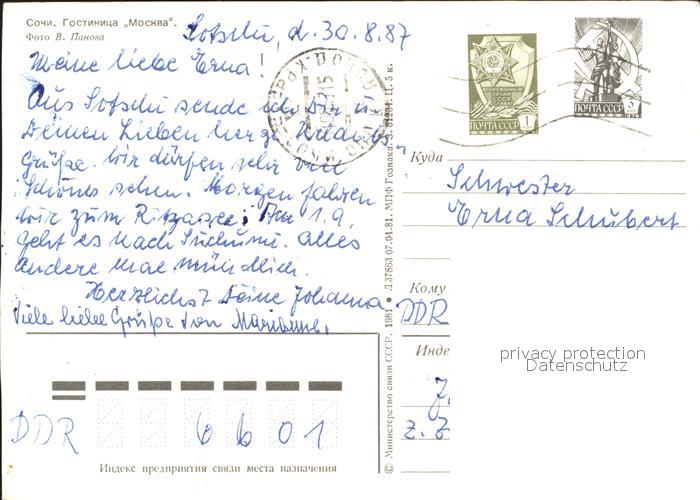 Сочи. Гостиница „Москва".
Фото В. Панова
Sotschi, d. 30.8.87
Meine liebe Erna!
Aus Sotschi sende ich Dir u.
Deinen Lieben herzl. Urlaubs-
grüße. Wir dürfen sehr viel
Schönes sehen. Morgen fahren
wir zum Ritzasee. Am 1.9.
geht es nach Suchumi. Alles
andere mal mündlich.
Herzlichst Deine Johanna
Viele liebe Grüße von Marianne.
ПОЧТА СССР 1
ПОЧТА СССР 3
1976
Куда
Schwester
Erna Schubert
Кому
DDR
Инде
z. Z
privacy protection
Datenschutz
© Министерство связи СССР. 1981 • Л37863 07.04.81. МПФ Гознака. З. Ц. 5 к.
DDR 6601
Индекс предприятия связи места назначения